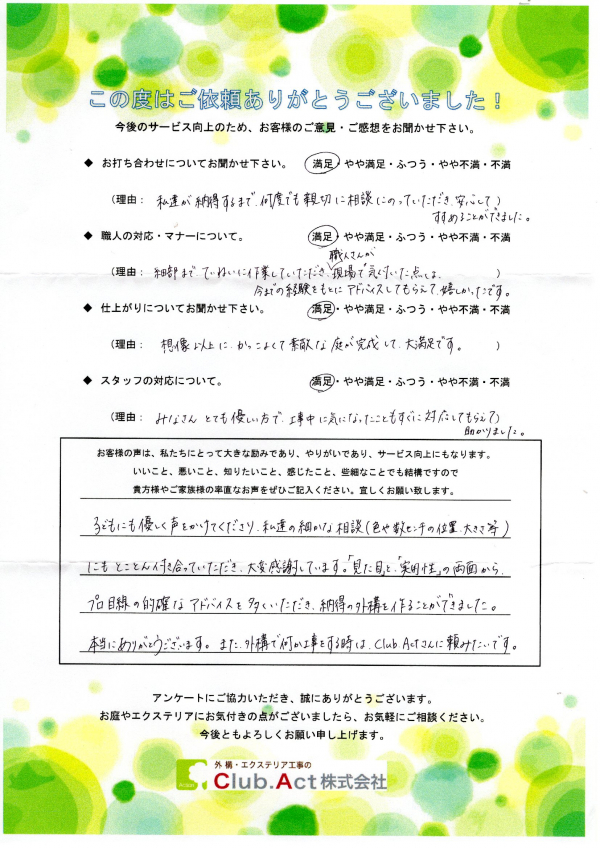 この度はご依頼ありがとうございました！
今後のサービス向上のため、お客様のご意見・ご感想をお聞かせ下さい。
◆ お打ち合わせについてお聞かせ下さい。 満足・やや満足・ふつう・やや不満・不満
（理由： 私達が納得するまで、何度でも親切に相談にのっていただき、安心して）
すすめることができました。
◆ 職人の対応・マナーについて。 満足・やや満足・ふつう・やや不満・不満
職人さんが
（理由： 細部まで、ていねいに作業していただき、現場で気付いた点は、 ）
今までの経験をもとにアドバイスしてもらえて、嬉しかったです。
◆ 仕上がりについてお聞かせ下さい。 満足・やや満足・ふつう・やや不満・不満
（理由： 想像以上に、かっこよくて素敵な庭が完成して、大満足です。 ）
◆ スタッフの対応について。 満足・やや満足・ふつう・やや不満・不満
（理由： みなさんとても優しい方で、工事中に気になったこともすぐに対応してもらえて）
助かりました。
お客様の声は、私たちにとって大きな励みであり、やりがいであり、サービス向上にもなります。
いいこと、悪いこと、知りたいこと、感じたこと、些細なことでも結構ですので
貴方様やご家族様の率直なお声をぜひご記入ください。宜しくお願い致します。
子どもにも優しく声をかけてくださり、私達の細かな相談（色や数センチの位置、大きさ等）
にもとことん付き合っていただき、大変感謝しています。「見た目」と、「実用性」の両面から、
プロ目線の的確なアドバイスを多くいただき、納得の外構を作ることができました。
本当にありがとうございます。また、外構で何か工事をする時は、Club.Actさんに頼みたいです。
アンケートにご協力いただき、誠にありがとうございます。
お庭やエクステリアにお気付きの点がございましたら、お気軽にご相談ください。
今後ともよろしくお願い申し上げます。
外構・エクステリア工事の
Club.Act株式会社